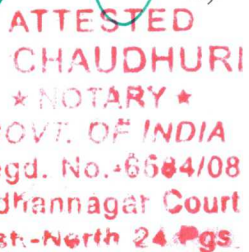 ATTESTED
CHAUDHURI
★ NOTARY ★
GOVT. OF INDIA
egd. No.-6684/08
dhannagar Court
st.-North 24 Pgs